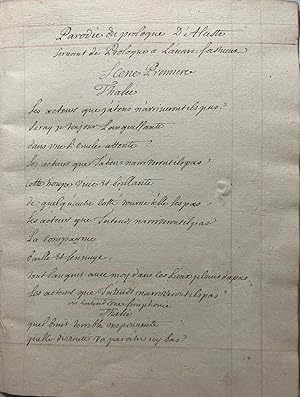 Parodie du prologue D'Alceste
servant de Prologue a L'avare fastueux
Scene Premiere
Thalie
Les acteurs que j'atens narriveront ils pas?
seray je toujours Languissante
dans une si cruelle attente
les acteurs que j'atens narriveront ils pas
cette troupe vive et brillante
de quelque autre costé tourne t'elle ses pas
les acteurs que j'atens narriveront ils pas
La compagnie
baille et sennuye
tout languit avec moy dans ces Lieux pleins d'apas
Les acteurs que j'attends narriveront ils pas?
on entend une simphonie
Thalie
quel bruit
quelle va paroitre icy bas?